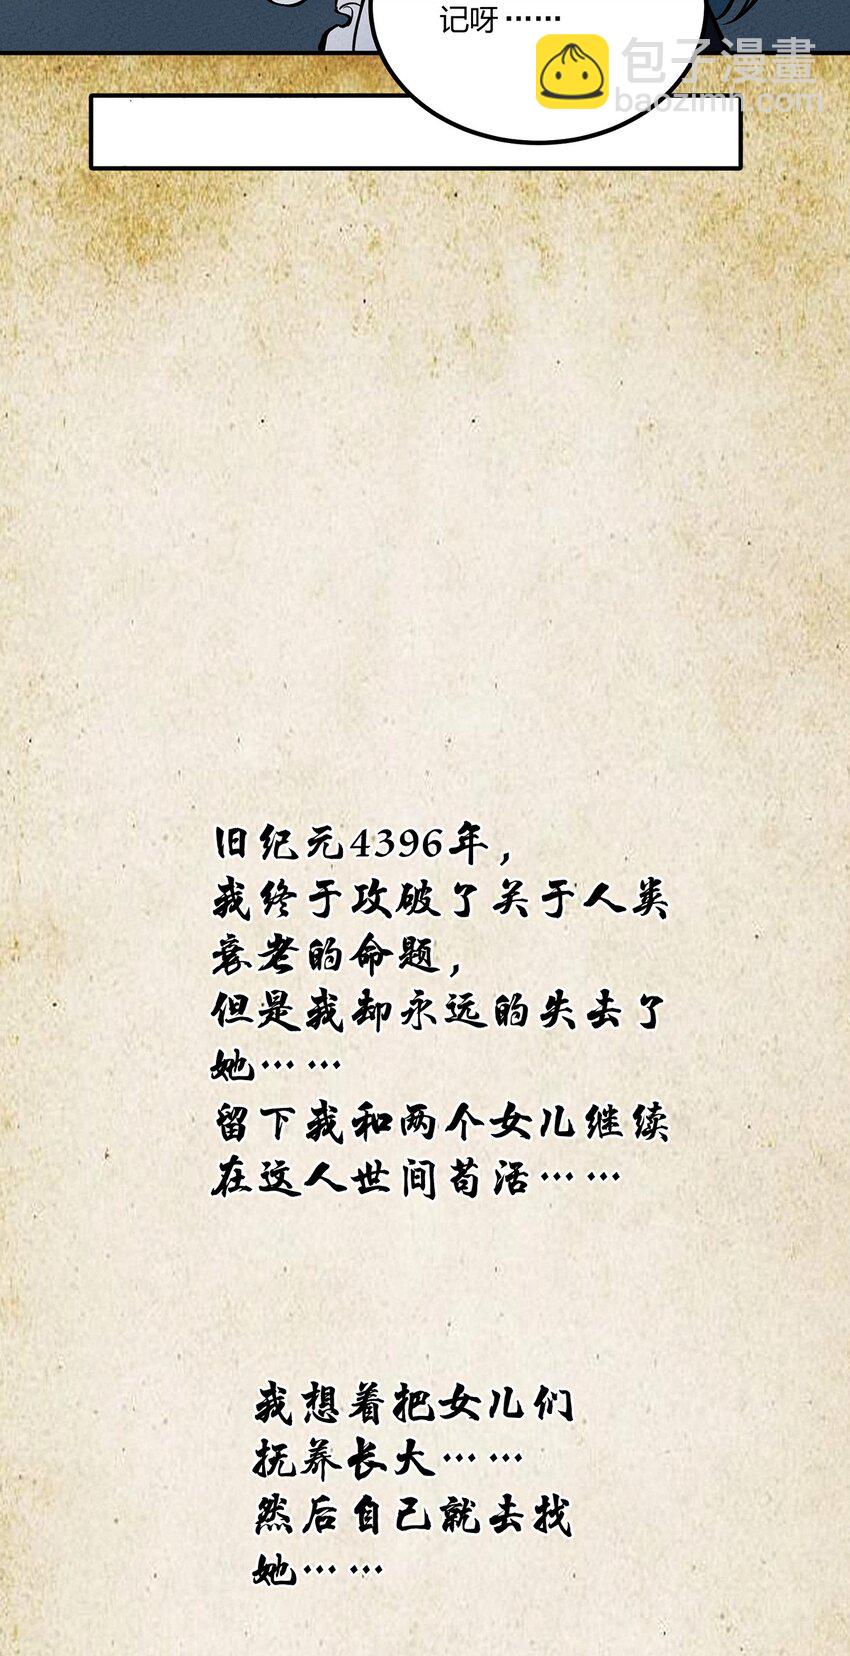 记呀……
包子漫畫
baozimh.com
旧纪元4396年，
我终于攻破了关于人类
衰老的命题，
但是我却永远的失去了
她……
留下我和两个女儿继续
在这人世间苟活……
我想着把女儿们
抚养长大……
然后自己就去找
她……